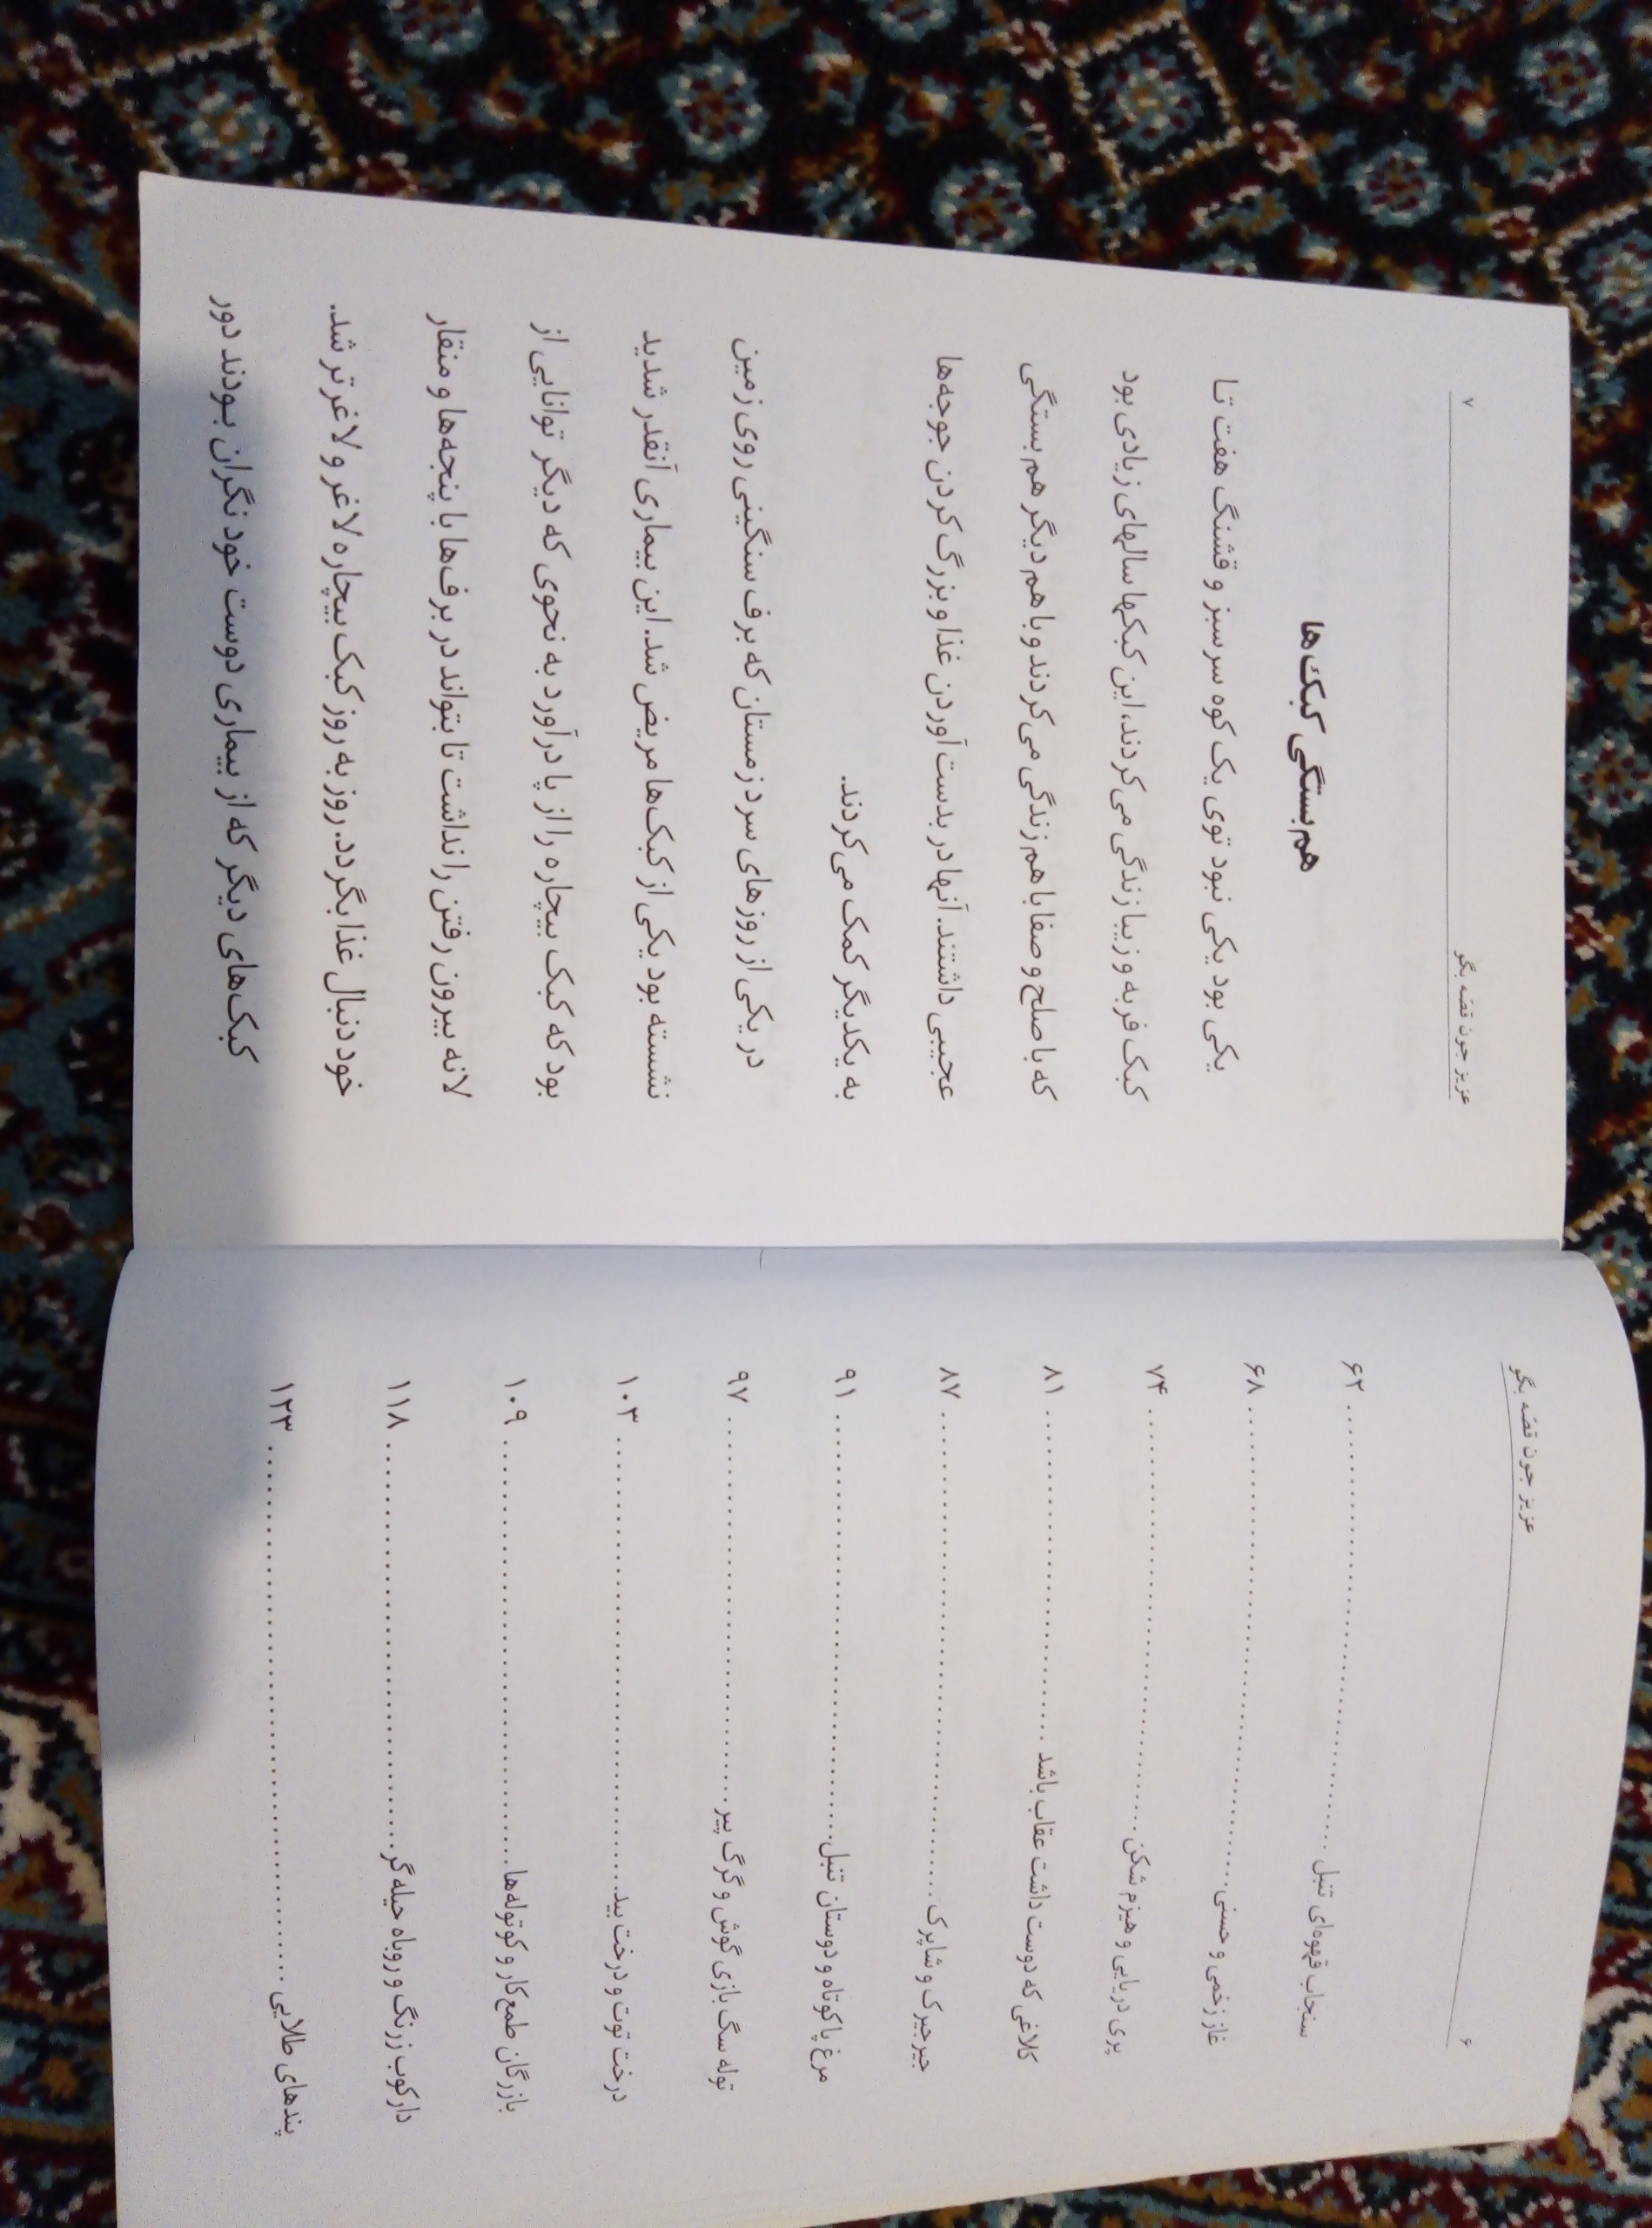 عزیز جون قصّه بگو ۶
سنجاب قهوه‌ای تنبل ........ ۶۲
غاز زخمی و حسنی ........ ۶۸
پری دریایی و هیزم شکن ........ ۷۴
کلاغی که دوست داشت عقاب باشد ........ ۸۱
جیرجیرک و شاپرک ........ ۸۷
مرغ پا کوتاه و دوستان تنبل ........ ۹۱
توله سگ بازی گوش و گرگ پیر ........ ۹۷
درخت توت و درخت بید ........ ۱۰۳
بازرگان طمع‌کار و کوتوله‌ها ........ ۱۰۹
دارکوب زرنگ و روباه حیله‌گر ........ ۱۱۸
پندهای طلایی ........ ۱۲۳
عزیز جون قصّه بگو ۷
هم‌بستگی کبک‌ها
یکی بود یکی نبود توی یک کوه سر سبز و قشنگ هفت تا
کبک فربه و زیبا زندگی می‌کردند، این کبکها سالهای زیادی بود
که با صلح و صفا با هم زندگی می‌کردند و با هم دیگر هم بستگی
عجیبی داشتند. آنها در بدست آوردن غذا و بزرگ کردن جوجه‌ها
به یکدیگر کمک می‌کردند.
در یکی از روزهای سرد زمستان که برف سنگینی روی زمین
نشسته بود یکی از کبک‌ها مریض شد. این بیماری آنقدر شدید
بود که کبک بیچاره را از پا درآورد به نحوی که دیگر توانایی از
لانه بیرون رفتن را نداشت تا بتواند در برف‌ها با پنجه‌ها و منقار
خود دنبال غذا بگردد. روز به روز کبک بیچاره لاغر و لاغرتر شد.
کبک‌های دیگر که از بیماری دوست خود نگران بودند دور